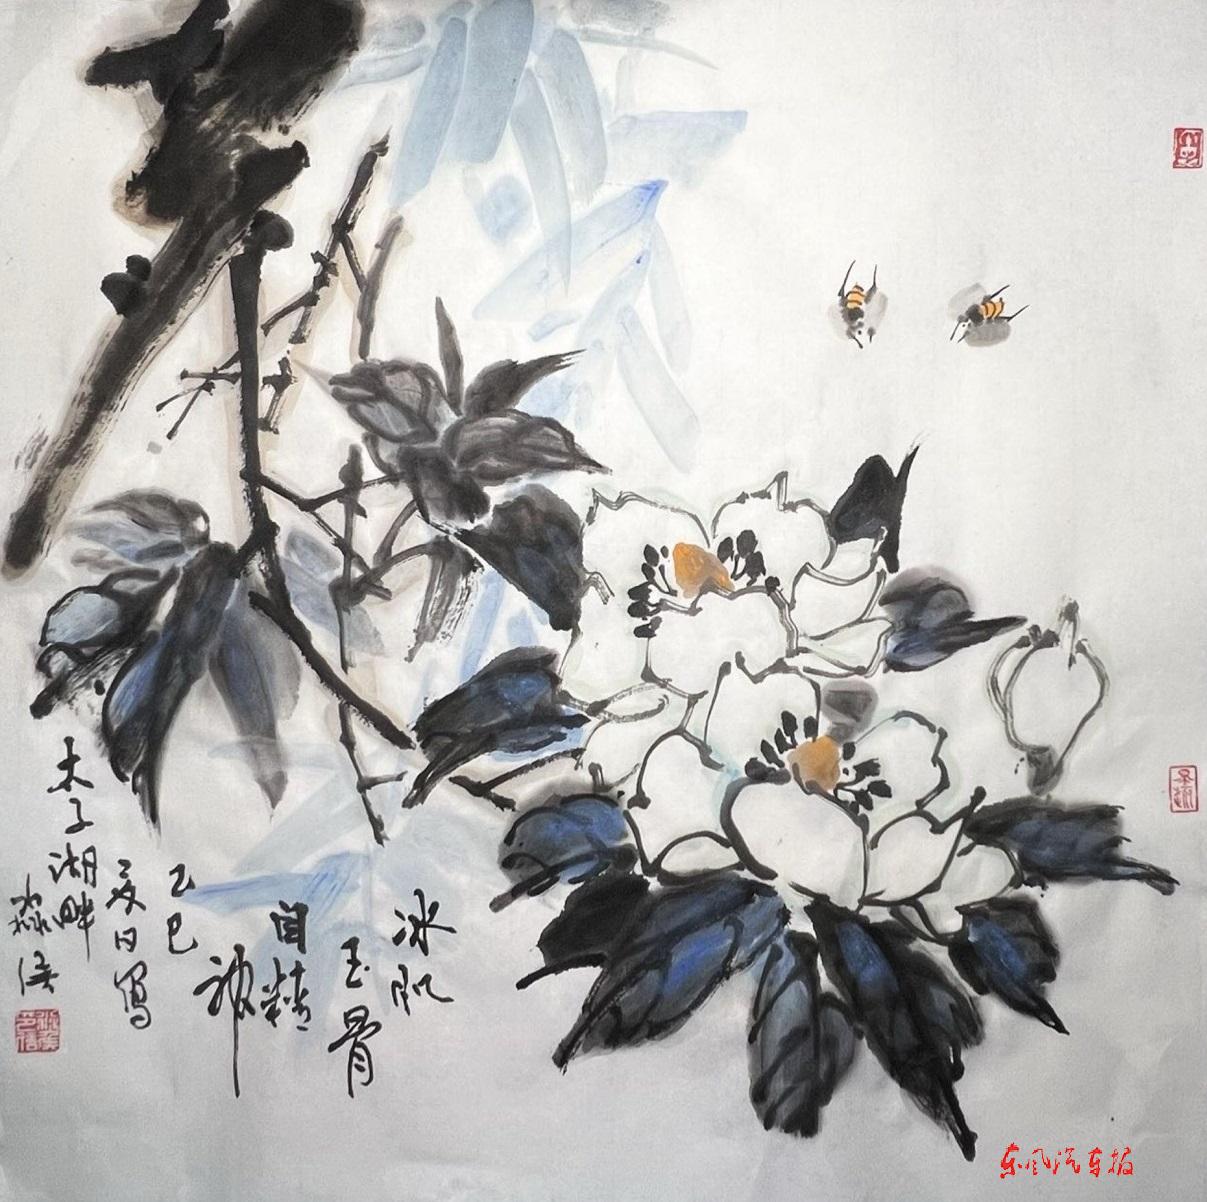 冰肌
玉骨
自精
神
乙巳
夏日写
木子湖畔
东风汽车报